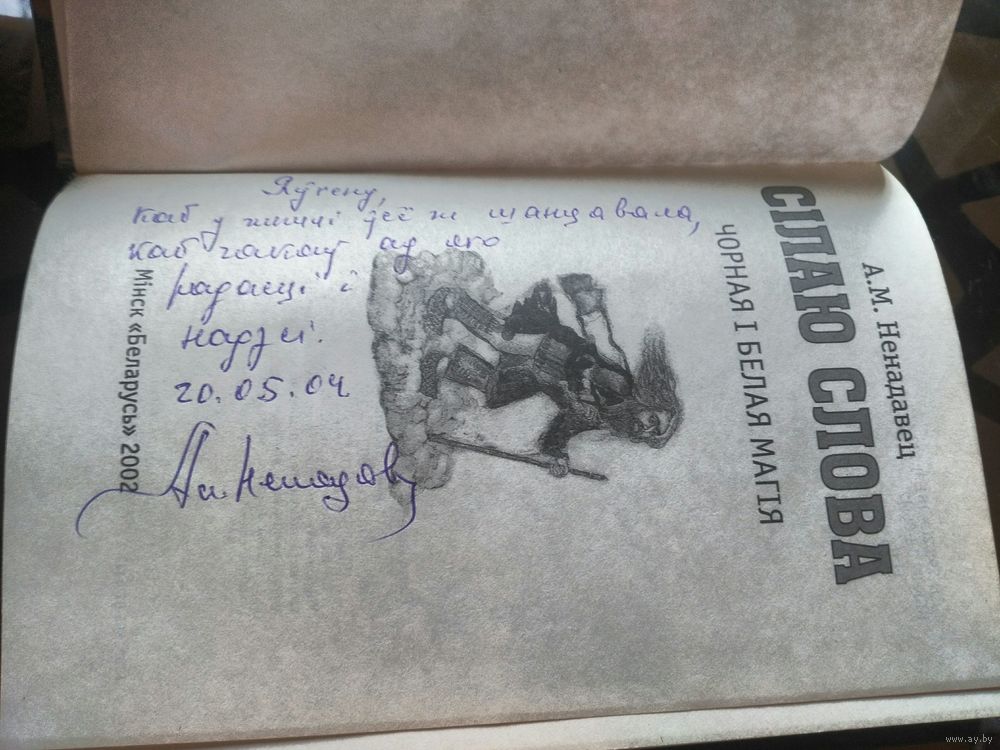 А.М. Ненадавец
СІЛАЮ СЛОВА
ЧОРНАЯ І БЕЛАЯ МАГІЯ
Мінск «Беларусь» 2002
Яўгену,
каб у жыцці ўсё ж шанцавала,
каб чакаў ад яго
радасці і
надзеі.
20.05.04
www.ay.by